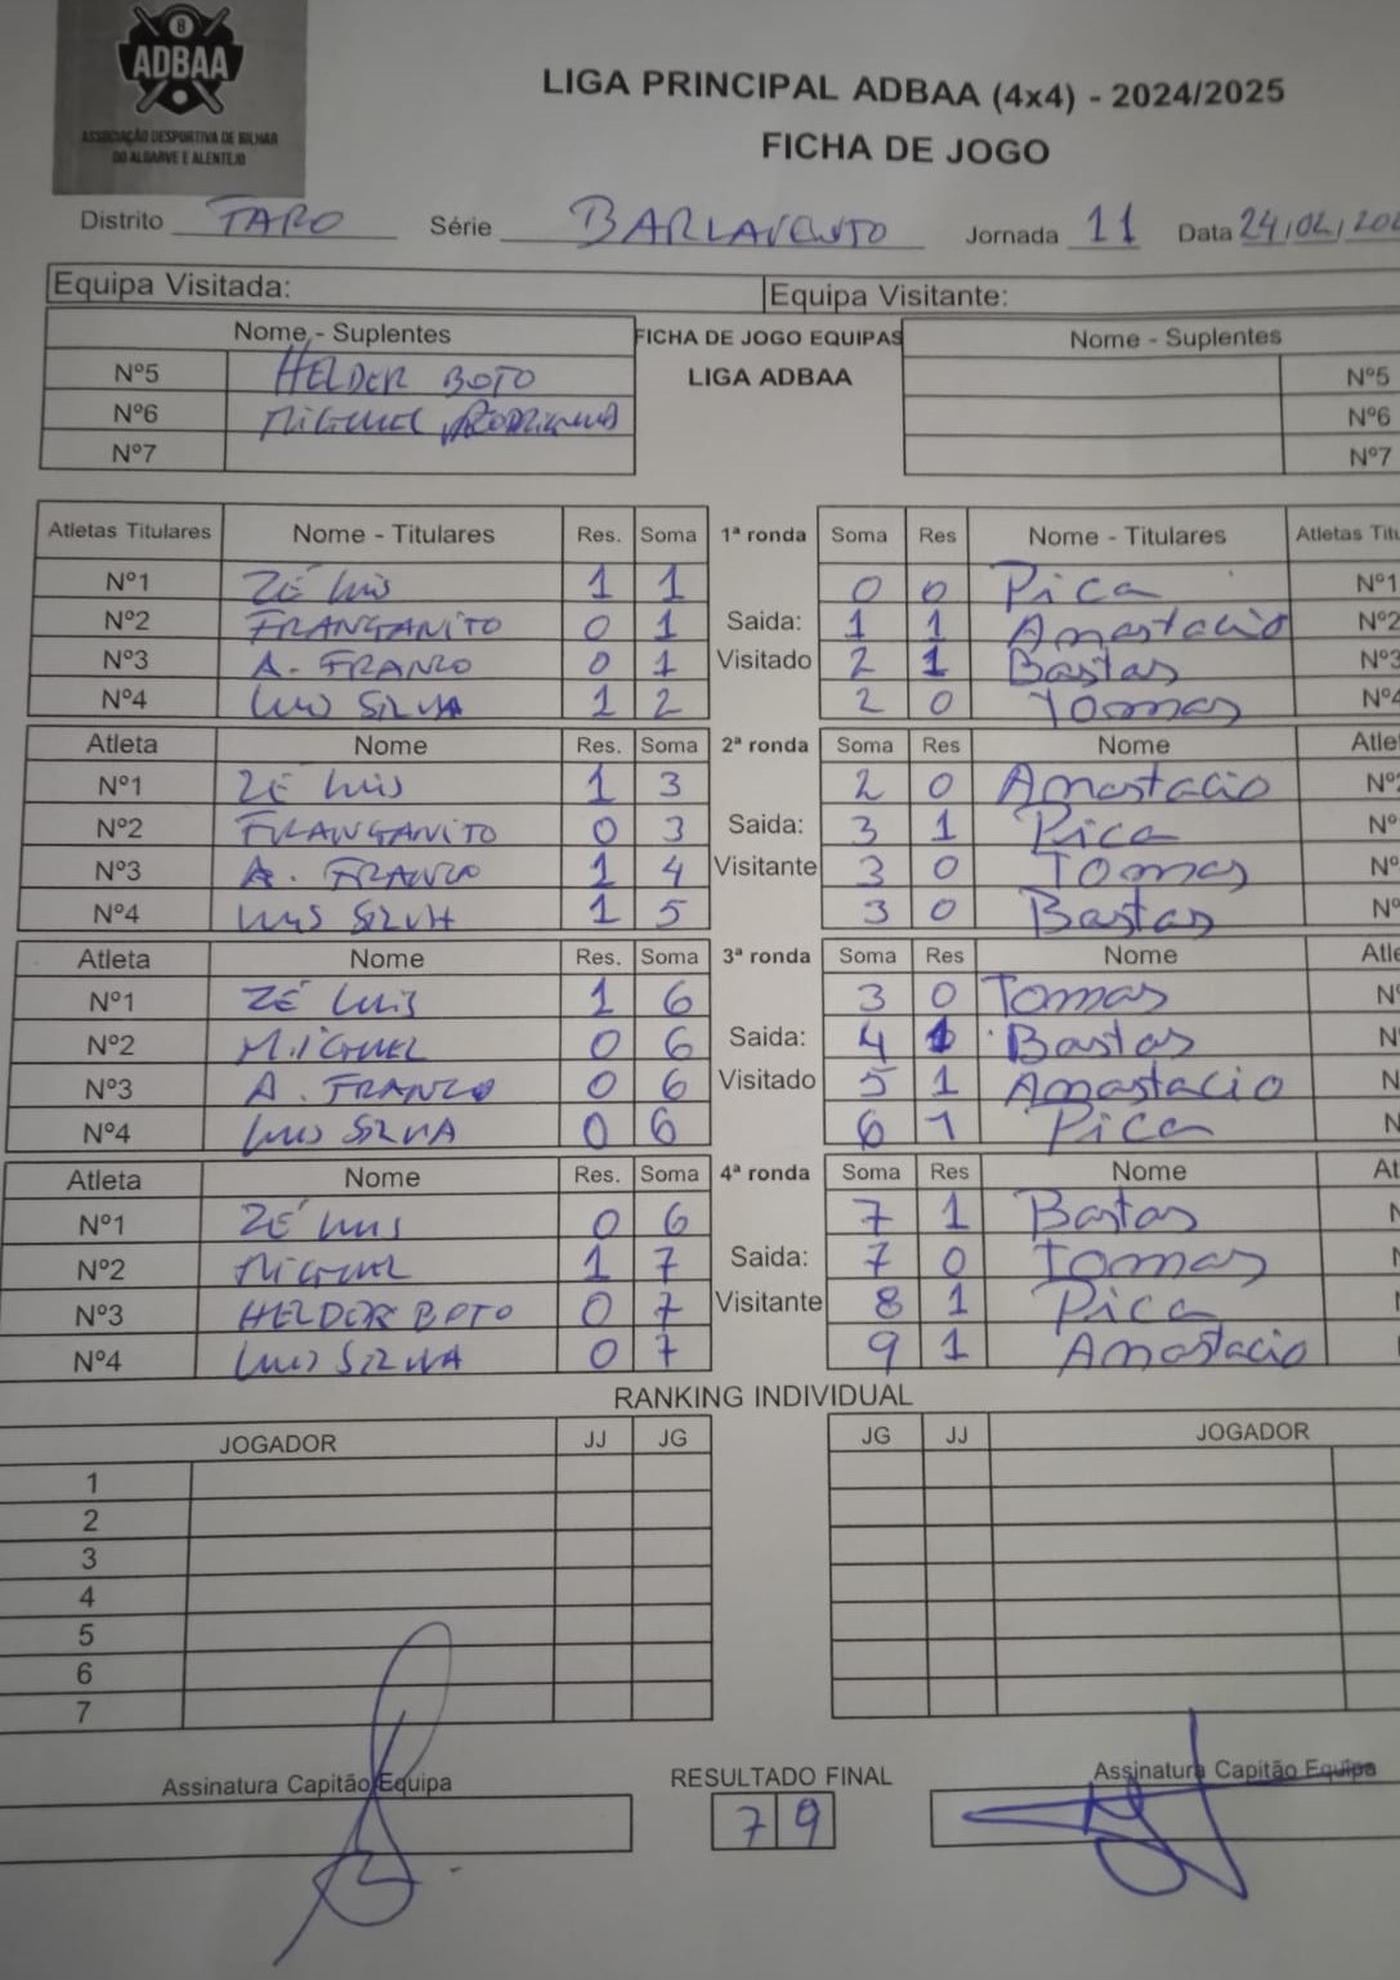 8
ADBAA
ASSOCIAÇÃO DESPORTIVA DE BILHAR
DO ALGARVE E ALENTEJO
LIGA PRINCIPAL ADBAA (4x4) - 2024/2025
FICHA DE JOGO
Distrito FARO Série BARLAVENTO Jornada 11 Data 24/02/202
Equipa Visitada: Equipa Visitante:
Nome - Suplentes FICHA DE JOGO EQUIPAS Nome - Suplentes
LIGA ADBAA
Nº5 HELDER BOTO Nº5
Nº6 MIGUEL RODRIGUES Nº6
Nº7 Nº7
Atletas Titulares Nome - Titulares Res. Soma 1ª ronda Soma Res Nome - Titulares Atletas Titu
Nº1 ZÉ LUIS 1 1 0 0 Pica Nº1
Nº2 FRANGANITO 0 1 Saida: 1 1 Anastacio Nº2
Nº3 A. FRANCO 0 1 Visitado 2 1 Bastas Nº3
Nº4 LUIS SILVA 1 2 2 0 Tomas Nº4
Atleta Nome Res. Soma 2ª ronda Soma Res Nome Atle
Nº1 ZÉ LUIS 1 3 2 0 Anastacio Nº2
Nº2 FRANGANITO 0 3 Saida: 3 1 Pica Nº
Nº3 A. FRANCO 1 4 Visitante 3 0 Tomas Nº
Nº4 LUIS SILVA 1 5 3 0 Bastas Nº
Atleta Nome Res. Soma 3ª ronda Soma Res Nome Atle
Nº1 ZÉ LUIS 1 6 3 0 Tomas Nº
Nº2 MIGUEL 0 6 Saida: 4 1 Bastas N
Nº3 A. FRANCO 0 6 Visitado 5 1 Anastacio N
Nº4 LUIS SILVA 0 6 6 1 Pica N
Atleta Nome Res. Soma 4ª ronda Soma Res Nome At
Nº1 ZÉ LUIS 0 6 7 1 Bastas N
Nº2 MIGUEL 1 7 Saida: 7 0 Tomas
Nº3 HELDER BOTO 0 7 Visitante 8 1 Pica
Nº4 LUIS SILVA 0 7 9 1 Anastacio
RANKING INDIVIDUAL
JOGADOR JJ JG JG JJ JOGADOR
1
2
3
4
5
6
7
Assinatura Capitão Equipa RESULTADO FINAL Assinatura Capitão Equipa
7 9